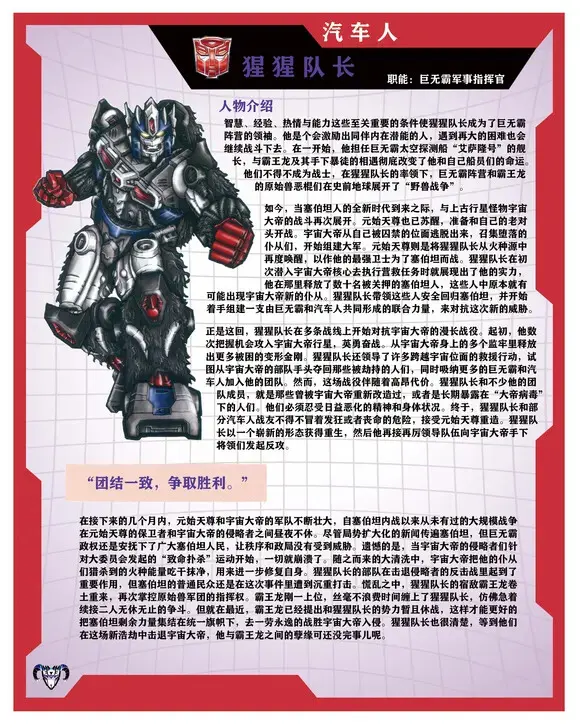 汽车人
猩猩队长
职能：巨无霸军事指挥官
人物介绍
智慧、经验、热情与能力这些至关重要的条件使猩猩队长成为了巨无霸
阵营的领袖。他是个会激励出同伴内在潜能的人，遇到再大的困难也会
继续战斗下去。在一开始，他担任巨无霸太空探测船“艾萨隆号”的舰
长，与霸王龙及其手下暴徒的相遇彻底改变了他和自己船员们的命运。
他们不得不成为战士，在猩猩队长的率领下，巨无霸阵营和霸王龙
的原始兽恶棍们在史前地球展开了“野兽战争”。
如今，当塞伯坦人的全新时代到来之际，与上古行星怪物宇宙
大帝的战斗再次展开。元始天尊也已苏醒，准备和自己的老对
头开战。宇宙大帝从自己被囚禁的位面逃脱出来，召集堕落的
仆从们，开始组建大军。元始天尊则是将猩猩队长从火种源中
再度唤醒，以作他的最强卫士为了塞伯坦而战。猩猩队长在初
次潜入宇宙大帝核心去执行营救任务时就展现出了他的实力，
他在那里释放了数十名被关押的塞伯坦人，这些人中原本就有
可能出现宇宙大帝新的仆从。猩猩队长带领这些人安全回归塞伯坦，并开始
着手组建一支由巨无霸和汽车人共同形成的联合力量，来对抗这次新的威胁。
正是这回，猩猩队长在多条战线上开始对抗宇宙大帝的漫长战役。起初，他数
次把握机会攻入宇宙大帝行星，英勇奋战。从宇宙大帝身上的多个监牢里释放
出更多被困的变形金刚。猩猩队长还领导了许多跨越宇宙位面的救援行动，试
图从宇宙大帝的部队手头夺回那些被劫持的人们，同时吸纳更多的巨无霸和汽
车人加入他的团队。然而，这场战役伴随着高昂代价。猩猩队长和不少他的团
队成员，就是那些曾被宇宙大帝重新改造过，或者是长期暴露在“大帝病毒”
下的人们。他们必须忍受日益恶化的精神和身体状况。终于，猩猩队长和部
分汽车人战友不得不冒着发狂或者丧命的危险，接受元始天尊重造。猩猩队
长以一个崭新的形态获得重生，然后他再接再厉领导队伍向宇宙大帝手下
将领们发起反攻。
“团结一致，争取胜利。”
在接下来的几个月内，元始天尊和宇宙大帝的军队不断壮大，自塞伯坦内战以来从未有过的大规模战争
在元始天尊的保卫者和宇宙大帝的侵略者之间昼夜不休。尽管局势扩大化的新闻传遍塞伯坦，但巨无霸
政权还是安抚下了广大塞伯坦人民，让秩序和政局没有受到威胁。遗憾的是，当宇宙大帝的侵略者们针
对大委员会发起的“致命扑杀”运动开始，一切就崩溃了。随之而来的大清洗中，宇宙大帝把他的仆从
们猎杀到的火种能量吃干抹净，用来进一步修复自身。猩猩队长的部队在击退侵略者的反击战里起到了
重要作用，但塞伯坦的普通民众还是在这次事件里遭到沉重打击。慌乱之中，猩猩队长的宿敌霸王龙卷
土重来，再次掌控原始兽军团的指挥权。霸王龙刚一上位，丝毫不浪费时间缠上了猩猩队长，仿佛急着
续接二人无休无止的争斗。但就在最近，霸王龙已经提出和猩猩队长的势力暂且休战，这样才能更好的
把塞伯坦剩余力量集结在统一旗帜下，去一劳永逸的战胜宇宙大帝入侵。猩猩队长也很清楚，等到他们
在这场新浩劫中击退宇宙大帝，他与霸王龙之间的孽缘可还没完事儿呢。